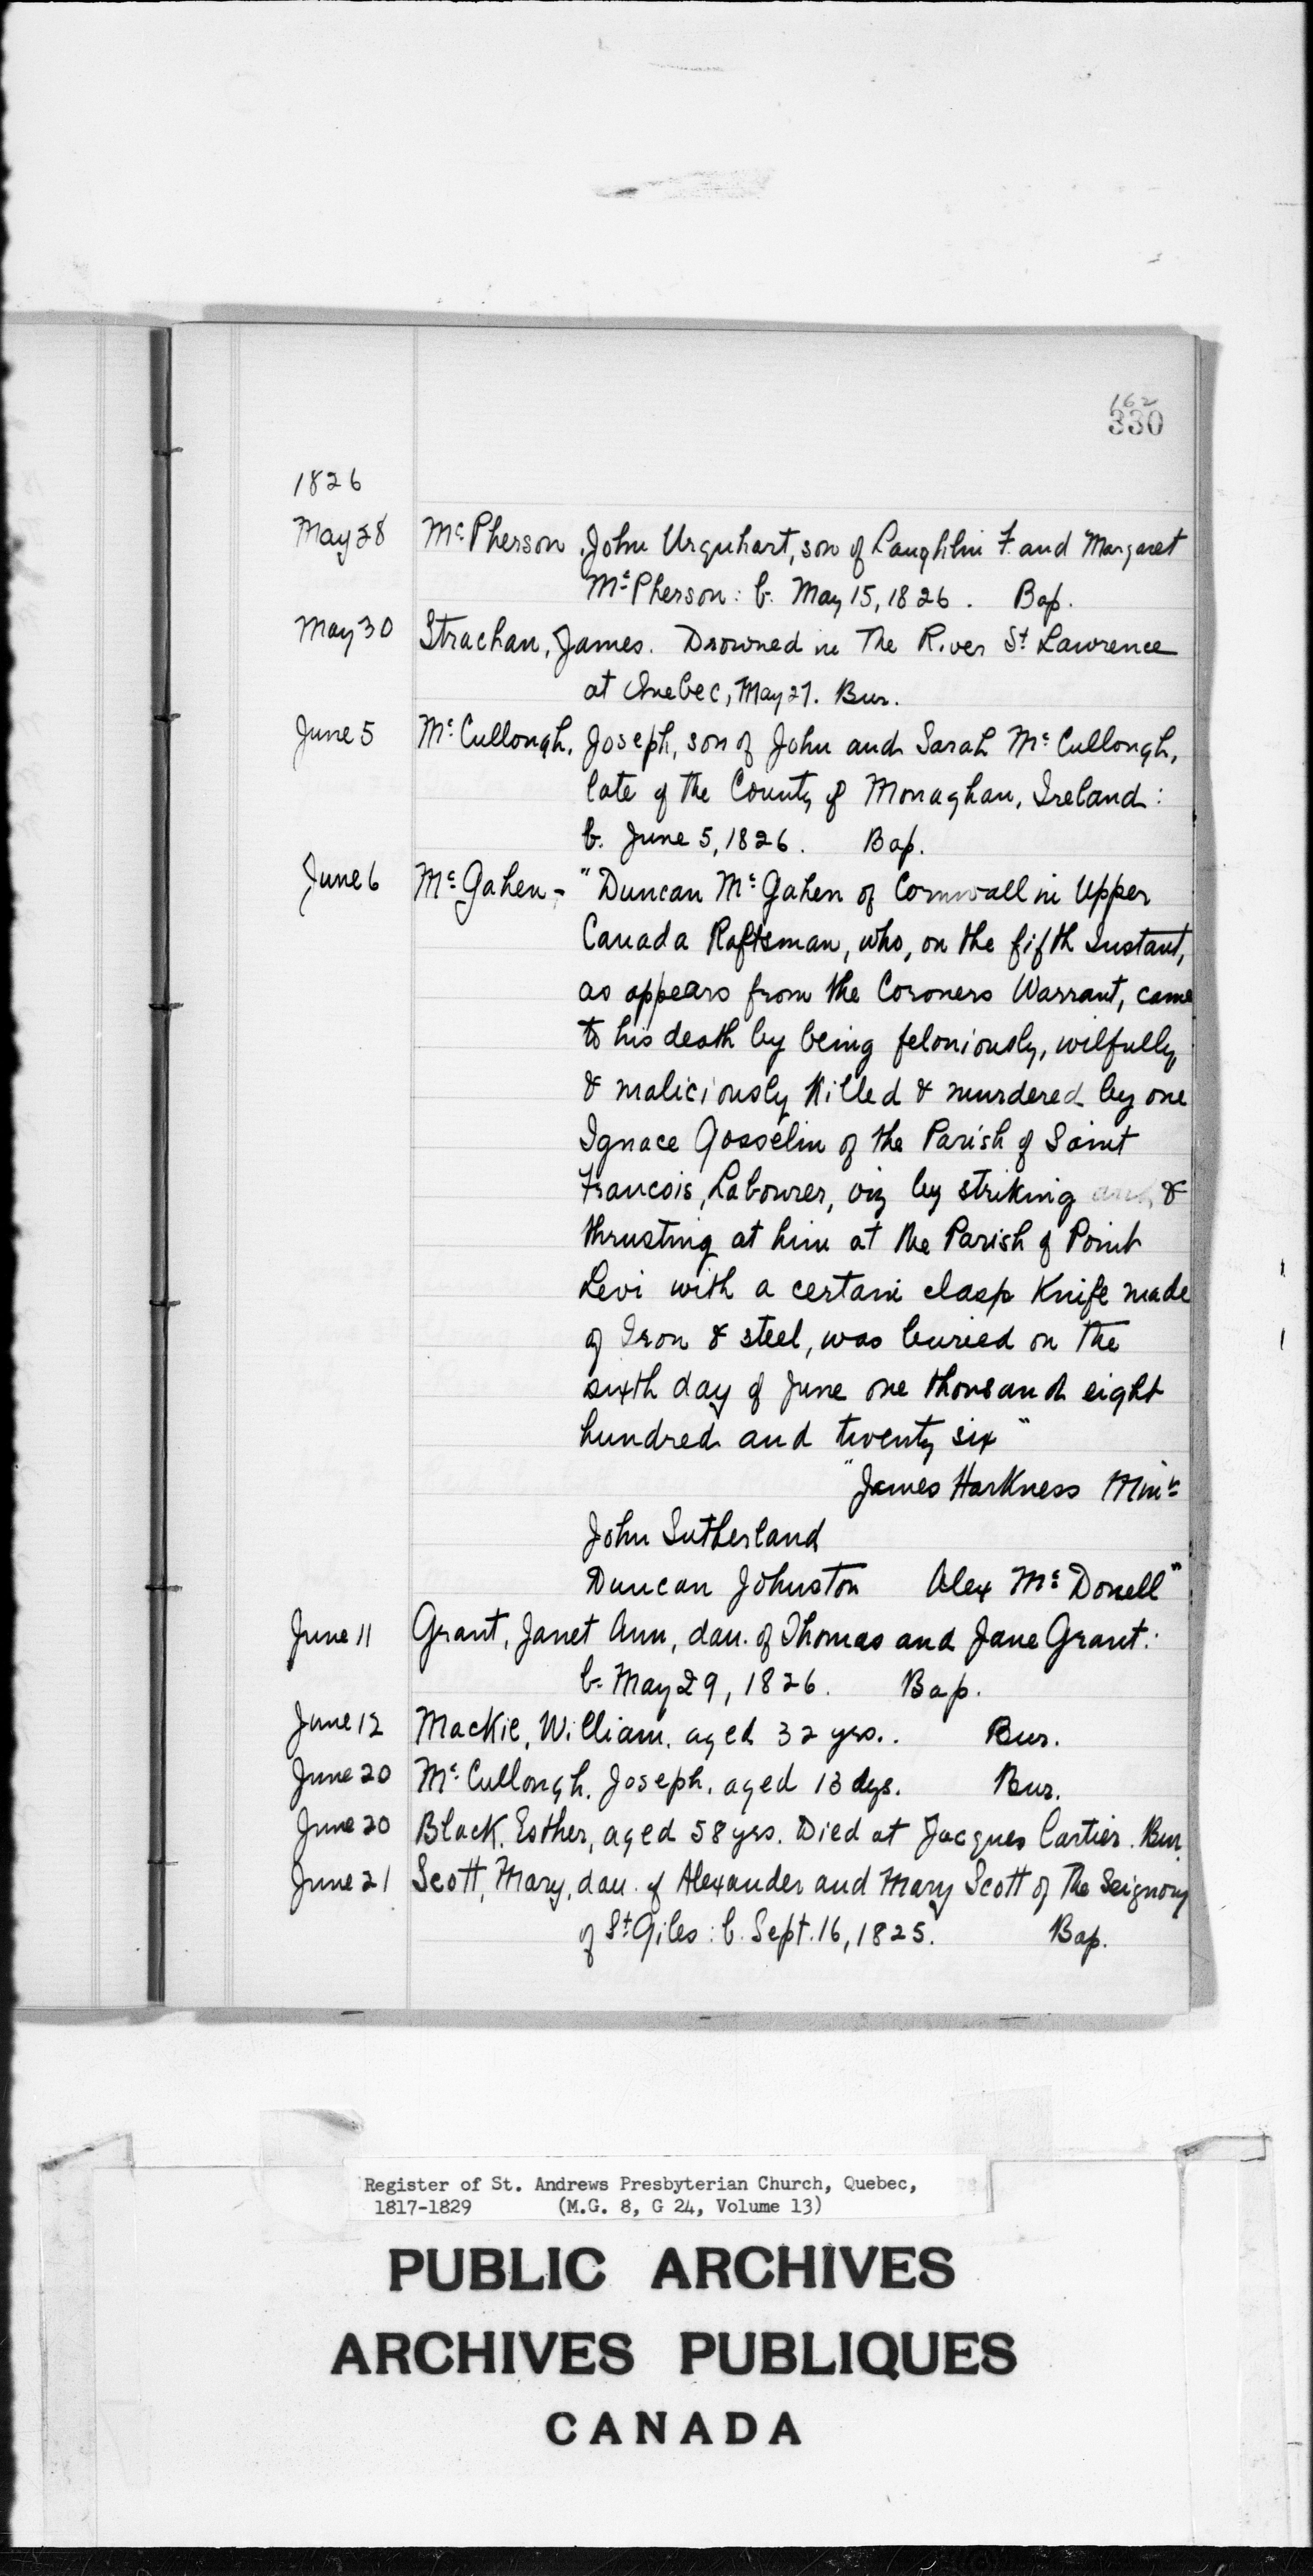 162
330
1826
May 28 McPherson, John Urquhart, son of Laughlin F. and Margaret
McPherson: b. May 15, 1826. Bap.
May 30 Strachan, James. Drowned in The River St Lawrence
at Quebec, May 27. Bur.
June 5 McCullough, Joseph, son of John and Sarah McCullough,
late of the County of Monaghan, Ireland:
b. June 5, 1826. Bap.
June 6 McGahen - "Duncan McGahen of Cornwall in Upper
Canada Raftsman, who, on the fifth Instant,
as appears from the Coroners Warrant, came
to his death by being feloniously, wilfully,
& maliciously Killed & murdered by one
Ignace Gosselin of the Parish of Saint
Francois, Labourer, viz by striking & 
thrusting at him at the Parish of Point
Levi with a certain clasp Knife made
of Iron & steel, was buried on the
sixth day of June one thousand eight
hundred and twenty six"
"James Harkness Minr
John Sutherland
Duncan Johnston Alex McDonell"
June 11 Grant, Janet Ann, dau. of Thomas and Jane Grant:
b. May 29, 1826. Bap.
June 12 Mackie, William, aged 32 yrs.. Bur.
June 20 McCullough, Joseph, aged 13 dys. Bur.
June 20 Black, Esther, aged 58 yrs. Died at Jacques Cartier. Bur.
June 21 Scott, Mary, dau. of Alexander and Mary Scott of The Seignory
of St Giles: b. Sept. 16, 1825. Bap.
Register of St. Andrews Presbyterian Church, Quebec,
1817-1829 (M.G. 8, G 24, Volume 13)
PUBLIC ARCHIVES
ARCHIVES PUBLIQUES
CANADA